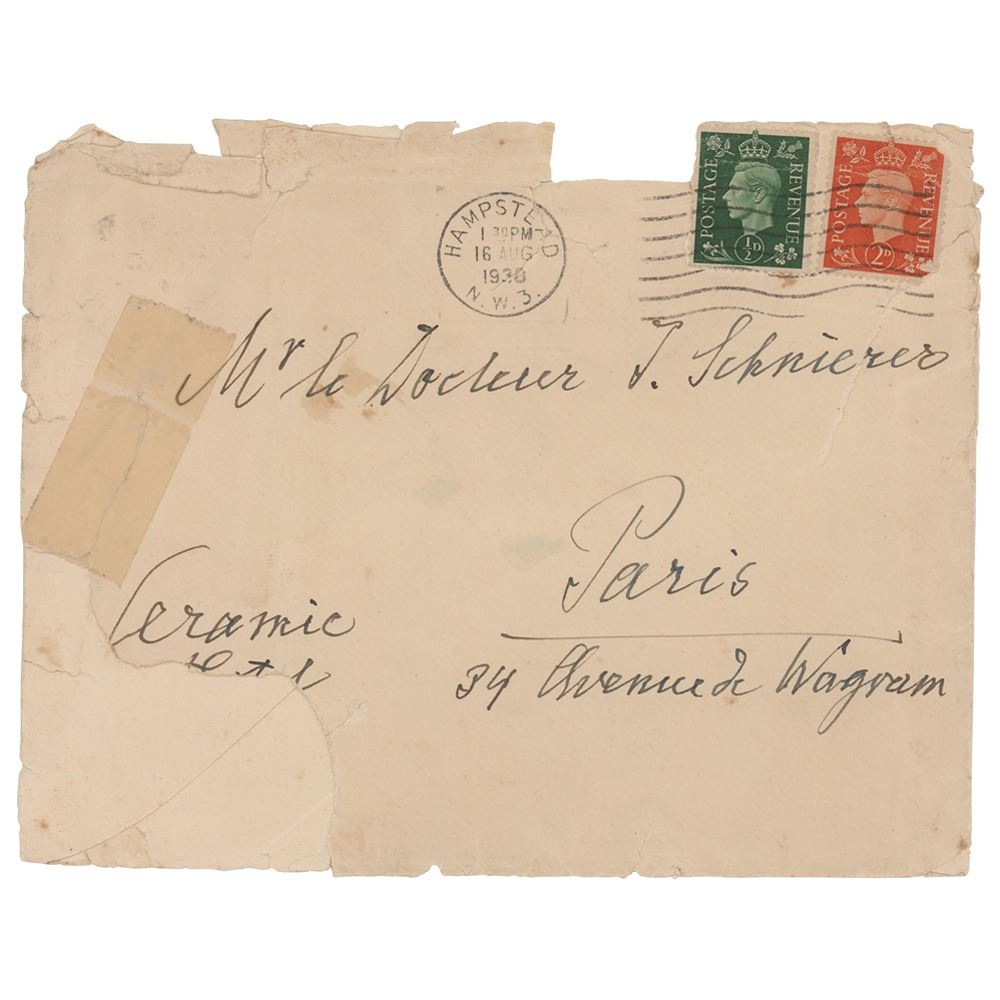 HAMPSTEAD
1 30 PM
16 AUG
1938
N.W.3.
POSTAGE REVENUE
½D
POSTAGE REVENUE
2D
Mr le Docteur J. Schnierer
Paris
Ceramic
34 Avenue de Wagram